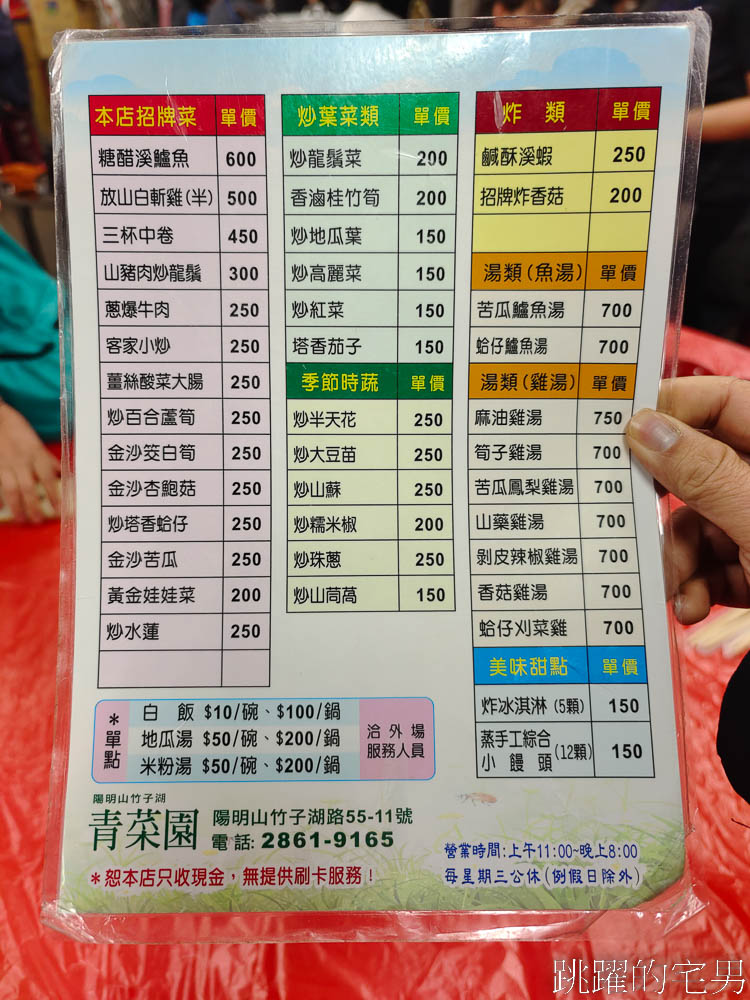 本店招牌菜 單價
糖醋溪鱸魚 600
放山白斬雞(半) 500
三杯中卷 450
山豬肉炒龍鬚 300
蔥爆牛肉 250
客家小炒 250
薑絲酸菜大腸 250
炒百合蘆筍 250
金沙筊白筍 250
金沙杏鮑菇 250
炒塔香蛤仔 250
金沙苦瓜 250
黃金娃娃菜 200
炒水蓮 250
炒葉菜類 單價
炒龍鬚菜 200
香滷桂竹筍 200
炒地瓜葉 150
炒高麗菜 150
炒紅菜 150
塔香茄子 150
季節時蔬 單價
炒半天花 250
炒大豆苗 250
炒山蘇 250
炒糯米椒 200
炒珠蔥 250
炒山茼萵 150
炸類 單價
鹹酥溪蝦 250
招牌炸香菇 200
湯類(魚湯) 單價
苦瓜鱸魚湯 700
蛤仔鱸魚湯 700
湯類(雞湯) 單價
麻油雞湯 750
筍子雞湯 700
苦瓜鳳梨雞湯 700
山藥雞湯 700
剝皮辣椒雞湯 700
香菇雞湯 700
蛤仔刈菜雞 700
美味甜點 單價
炸冰淇淋(5顆) 150
蒸手工綜合小饅頭(12顆) 150
*單點
白飯 $10/碗、$100/鍋
地瓜湯 $50/碗、$200/鍋
米粉湯 $50/碗、$200/鍋
洽外場
服務人員
陽明山竹子湖
青菜園
陽明山竹子湖路55-11號
電話: 2861-9165
*恕本店只收現金，無提供刷卡服務！
營業時間:上午11:00~晚上8:00
每星期三公休(例假日除外)
跳躍的宅男